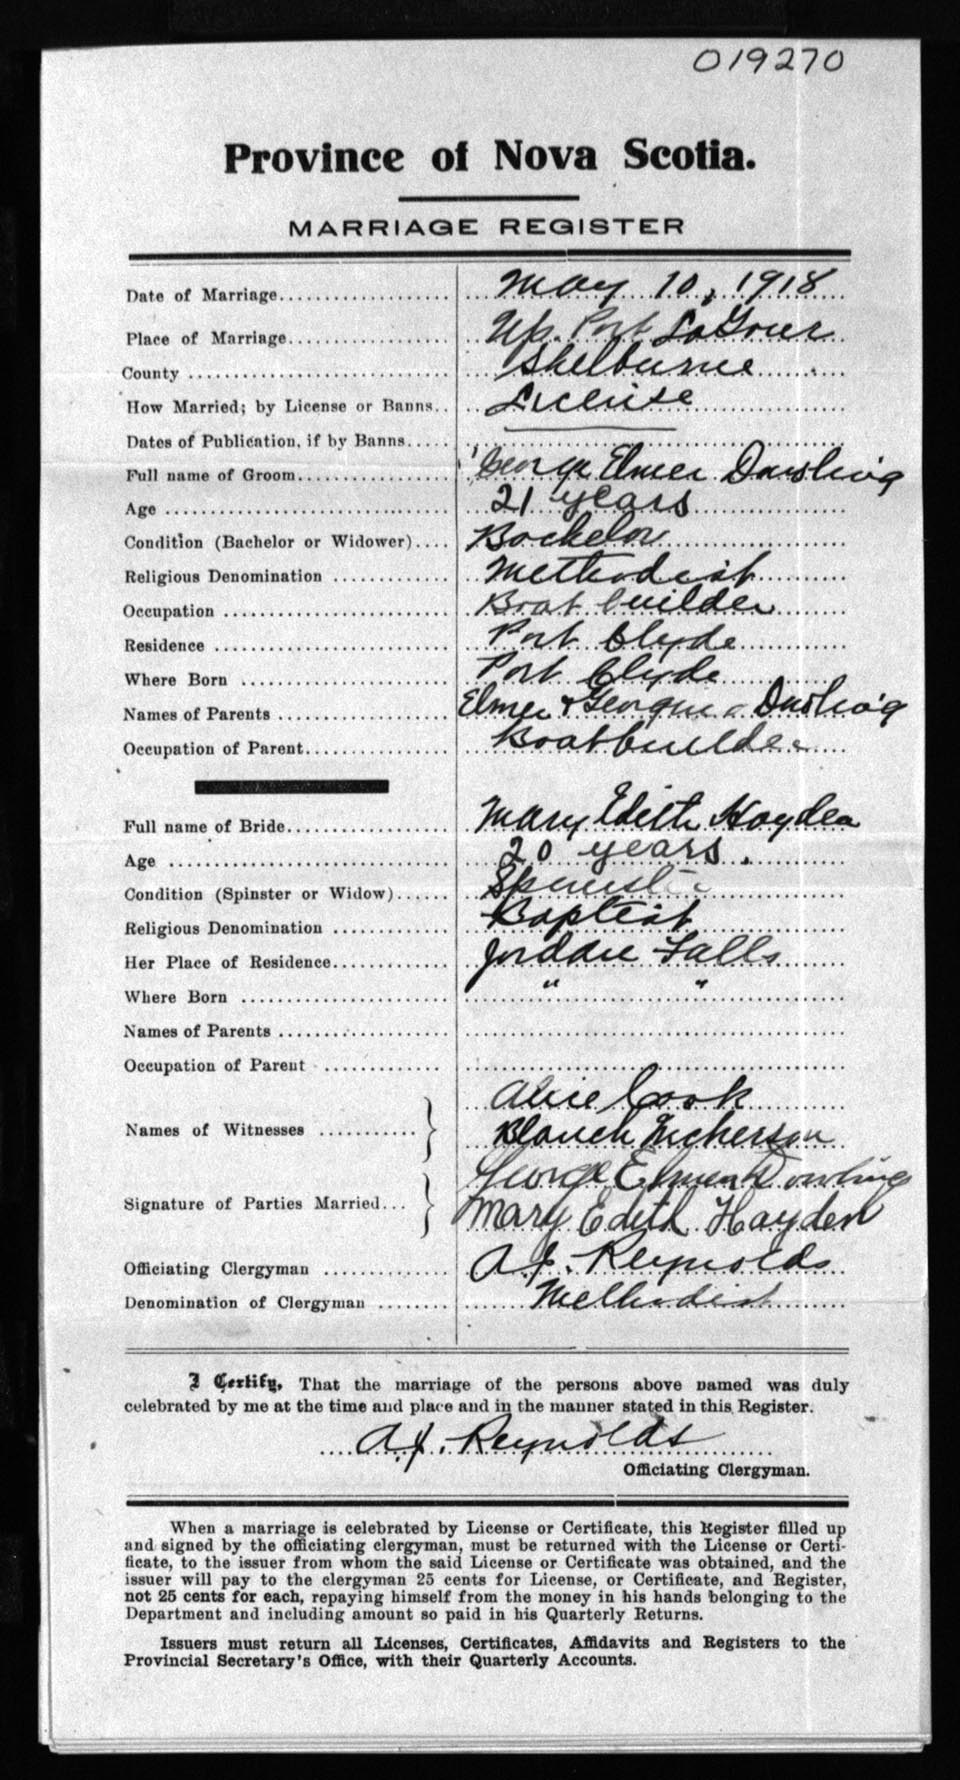 019270
Province of Nova Scotia.
MARRIAGE REGISTER
Date of Marriage.................... May 10, 1918
Place of Marriage................... Up. Port LaTour
County .............................. Shelburne
How Married; by License or Banns.. License
Dates of Publication, if by Banns.....
Full name of Groom.................. George Elmer Dowling
Age ................................. 21 years
Condition (Bachelor or Widower).... Bachelor
Religious Denomination ............. Methodist
Occupation .......................... Boat builder
Residence ........................... Port Clyde
Where Born ......................... Port Clyde
Names of Parents ................... Elmer & Georgina Dowling
Occupation of Parent................. Boatbuilder
Full name of Bride................... Mary Edith Hayden
Age ................................. 20 years.
Condition (Spinster or Widow)...... Spinster
Religious Denomination ............. Baptist
Her Place of Residence.............. Jordan Falls
Where Born ......................... " "
Names of Parents ...................
Occupation of Parent .............
Alice Cook
Names of Witnesses ...........}
Blanch Nickerson
George Elmer Dowling
Signature of Parties Married...}
Mary Edith Hayden
Officiating Clergyman ............. A.J. Reynolds
Denomination of Clergyman ........ Methodist
I Certify, That the marriage of the persons above named was duly
celebrated by me at the time and place and in the manner stated in this Register.
A.J. Reynolds
Officiating Clergyman.
When a marriage is celebrated by License or Certificate, this Register filled up
and signed by the officiating clergyman, must be returned with the License or Certi-
ficate, to the issuer from whom the said License or Certificate was obtained, and the
issuer will pay to the clergyman 25 cents for License, or Certificate, and Register,
not 25 cents for each, repaying himself from the money in his hands belonging to the
Department and including amount so paid in his Quarterly Returns.
Issuers must return all Licenses, Certificates, Affidavits and Registers to the
Provincial Secretary's Office, with their Quarterly Accounts.